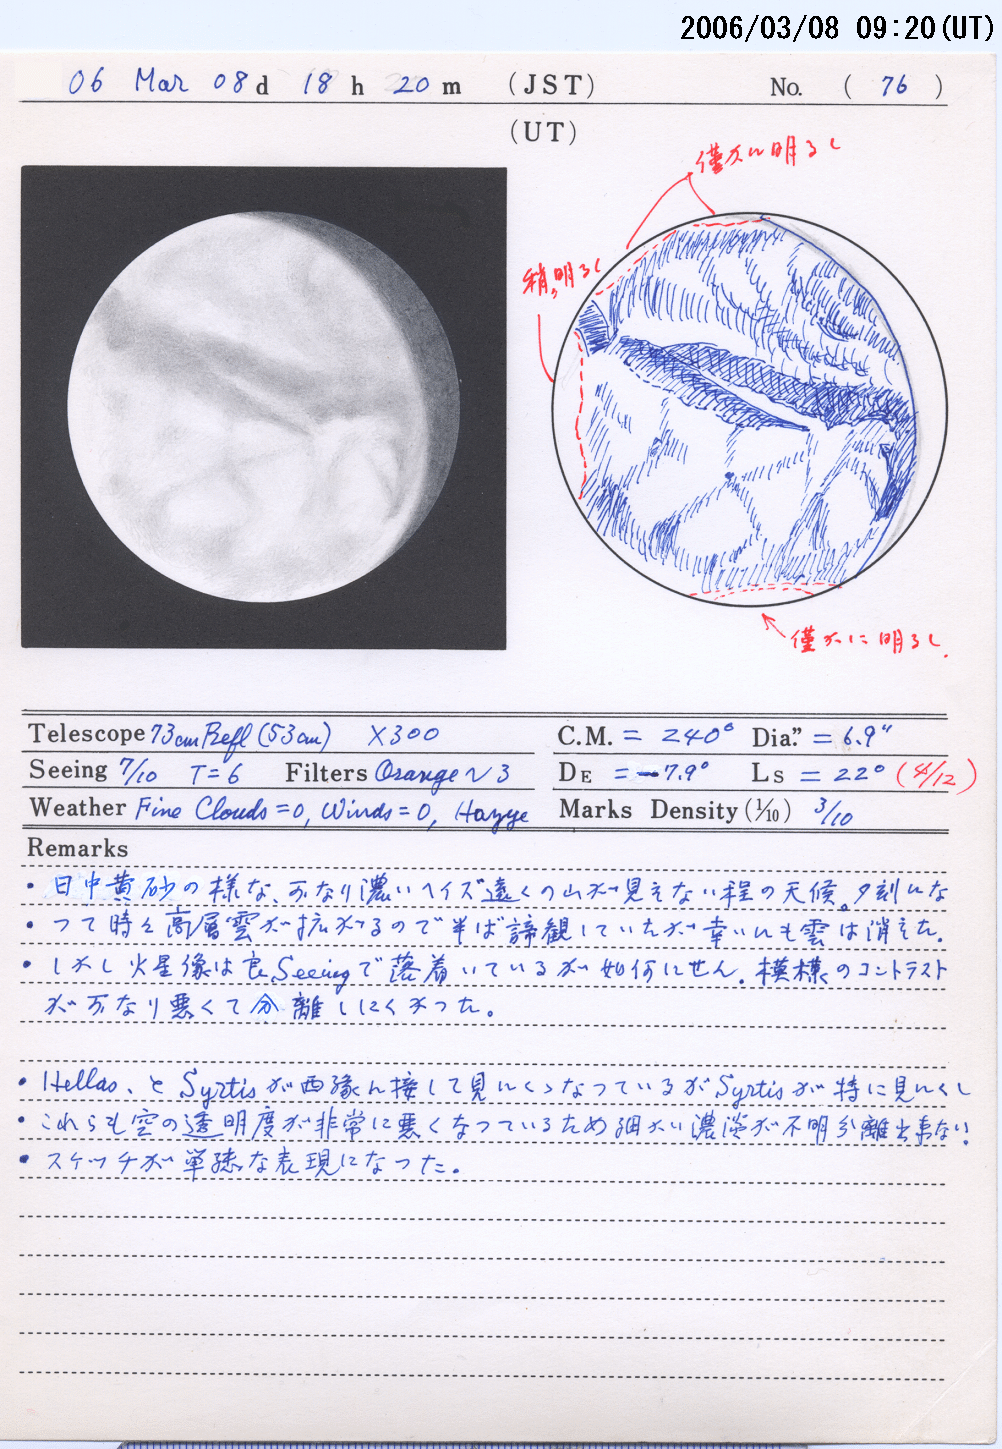 2006/03/08 09:20(UT)
06 Mar 08d 18h 20m (JST) No. (76)
(UT)
僅かに明るし
稍々明るし
僅かに明るし.
Telescope 73cm Refl (53cm) X300 C.M. = 240° Dia." = 6.9"
Seeing 7/10 T=6 Filters Orange ~ 3 DE = -7.9° Ls = 22° (4/12)
Weather Fine Clouds=0, Winds=0, Hazye Marks Density (1/10) 3/10
Remarks
・日中黄砂の様な、かなり濃いヘイズ遠くの山が見えない程の天候。夕刻にな
・つて時々高層雲が拡がるので半ば諦観していたが幸いにも雲は消えた.
・しかし火星像は良Seeingで落着いているが如何にせん.模様のコントラスト
がかなり悪くて分離しにくかつた。
・Hellas、と Syrtisが西縁に接して見にくくなつているがSyrtisが特に見にくし
・これらも空の透明度が非常に悪くなつているため細かい濃淡が不明分離出来ない!
・スケッチが単純な表現になつた。